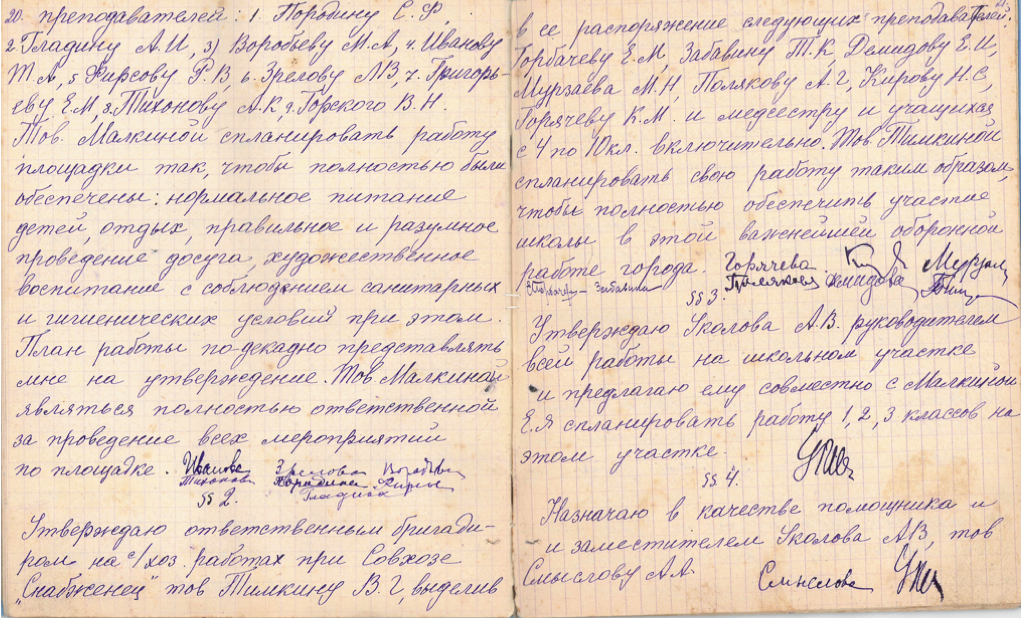 20. преподавателей: 1. Породину С.Ф,
2 Гладину А.И, 3) Воробьеву М.А, 4. Иванову
Т.А, 5 Фирсову Р.В, 6. Зрелову Л.В, 7. Григорь-
еву Е.М, 8. Тихонову А.К, 9. Горского В.Н.
Тов. Малкиной спланировать работу
площадки так, чтобы полностью были
обеспечены: нормальное питание
детей, отдых, правильное и разумное
проведение досуга, художественное
воспитание с соблюдением санитарных
и гигиенических условий при этом.
План работы по-декадно представлять
мне на утверждение. Тов Малкиной
являться полностью ответственной
за проведение всех мероприятий
по площадке. Иванова Зрелова
Тихонова Породина
Гладина
§§ 2.
Утверждаю ответственным бригади-
ром на с/хоз. работах при Совхозе
"Снабженец" тов Тимкину В.Г, выделив
21.
в ее распоряжение следующих преподавателей:
Горбачеву Е.М, Забавину Т.К, Демидову Е.И,
Мурзаева М.Н, Полякову А.Г, Кирову Н.С,
Горячеву К.М. и медсестру и учащихся
с 4 по 10 кл. включительно. Тов. Тимкиной
спланировать свою работу таким образом,
чтобы полностью обеспечить участие
школы в этой важнейшей оборонной
работе города. Горячева
Забавина Полякова
§§ 3.
Утверждаю Уколова А.В. руководителем
всей работы на школьном участке
и предлагаю ему совместно с Малкиной
Е.Я спланировать работу 1, 2, 3 классов на
этом участке.
§§ 4.
Назначаю в качестве помощника и
и заместителем Уколова А.В, тов
Смыслову А.А.
Смыслова